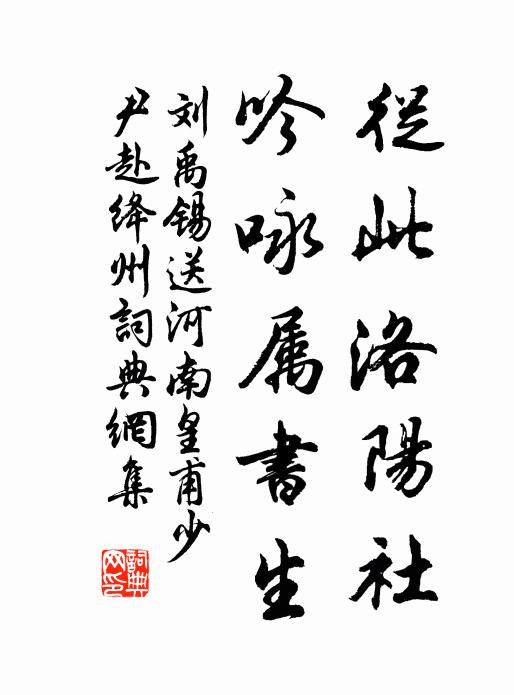 從此洛陽社
吟咏属書生
刘禹錫送河南皇甫少
尹赴絳州詞典網集
詞典
网印